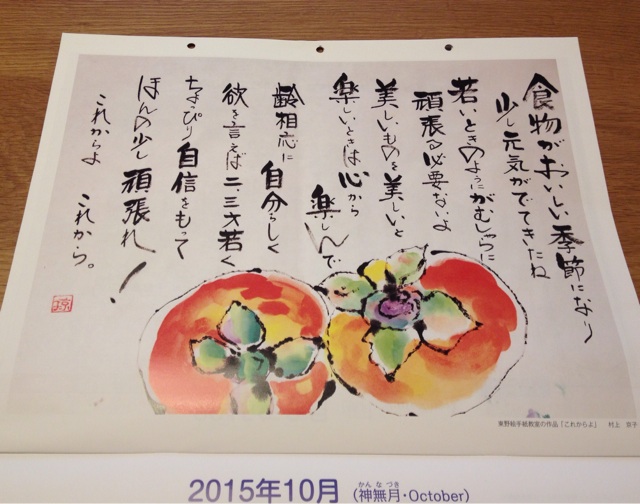 食物がおいしい季節になり
少し元気がでてきたね
若いときのようにがむしゃらに
頑張る必要ないよ
美しいものを美しいと
楽しいときは心から
楽しんで
齢相応に
自分らしく
欲を言えば二、三才若く
ちょっぴり自信をもって
ほんの少し頑張れ!
これからよ これから。
東野絵手紙教室の作品「これからよ」 村上 京子
かん な づき
2015年10月(神無月・October)